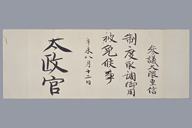 参議大隈重信
制度取調御用
被免候事
辛未八月十二日
太政官